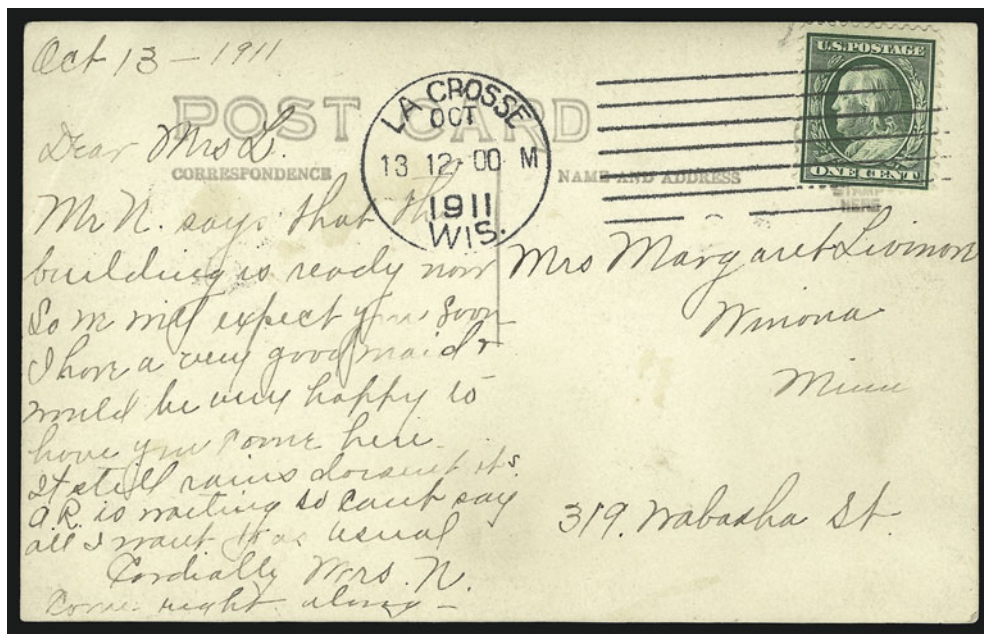 Oct 13 - 1911
POST CARD
LA CROSSE
OCT
13 12-00 M
1911
WIS.
U.S. POSTAGE
ONE CENT
STAMP
HERE
CORRESPONDENCE
NAME AND ADDRESS
Dear Mrs L.
Mr N. says that the
building is ready now
So we will expect you soon
I have a very good maid &
would be very happy to
have you come here
It still rains doesnt it
A.R. is waiting so cant say
all I want to as usual
Cordially Mrs. N.
Come right along -
Mrs Margaret
Winona
Minn
319. Wabasha St